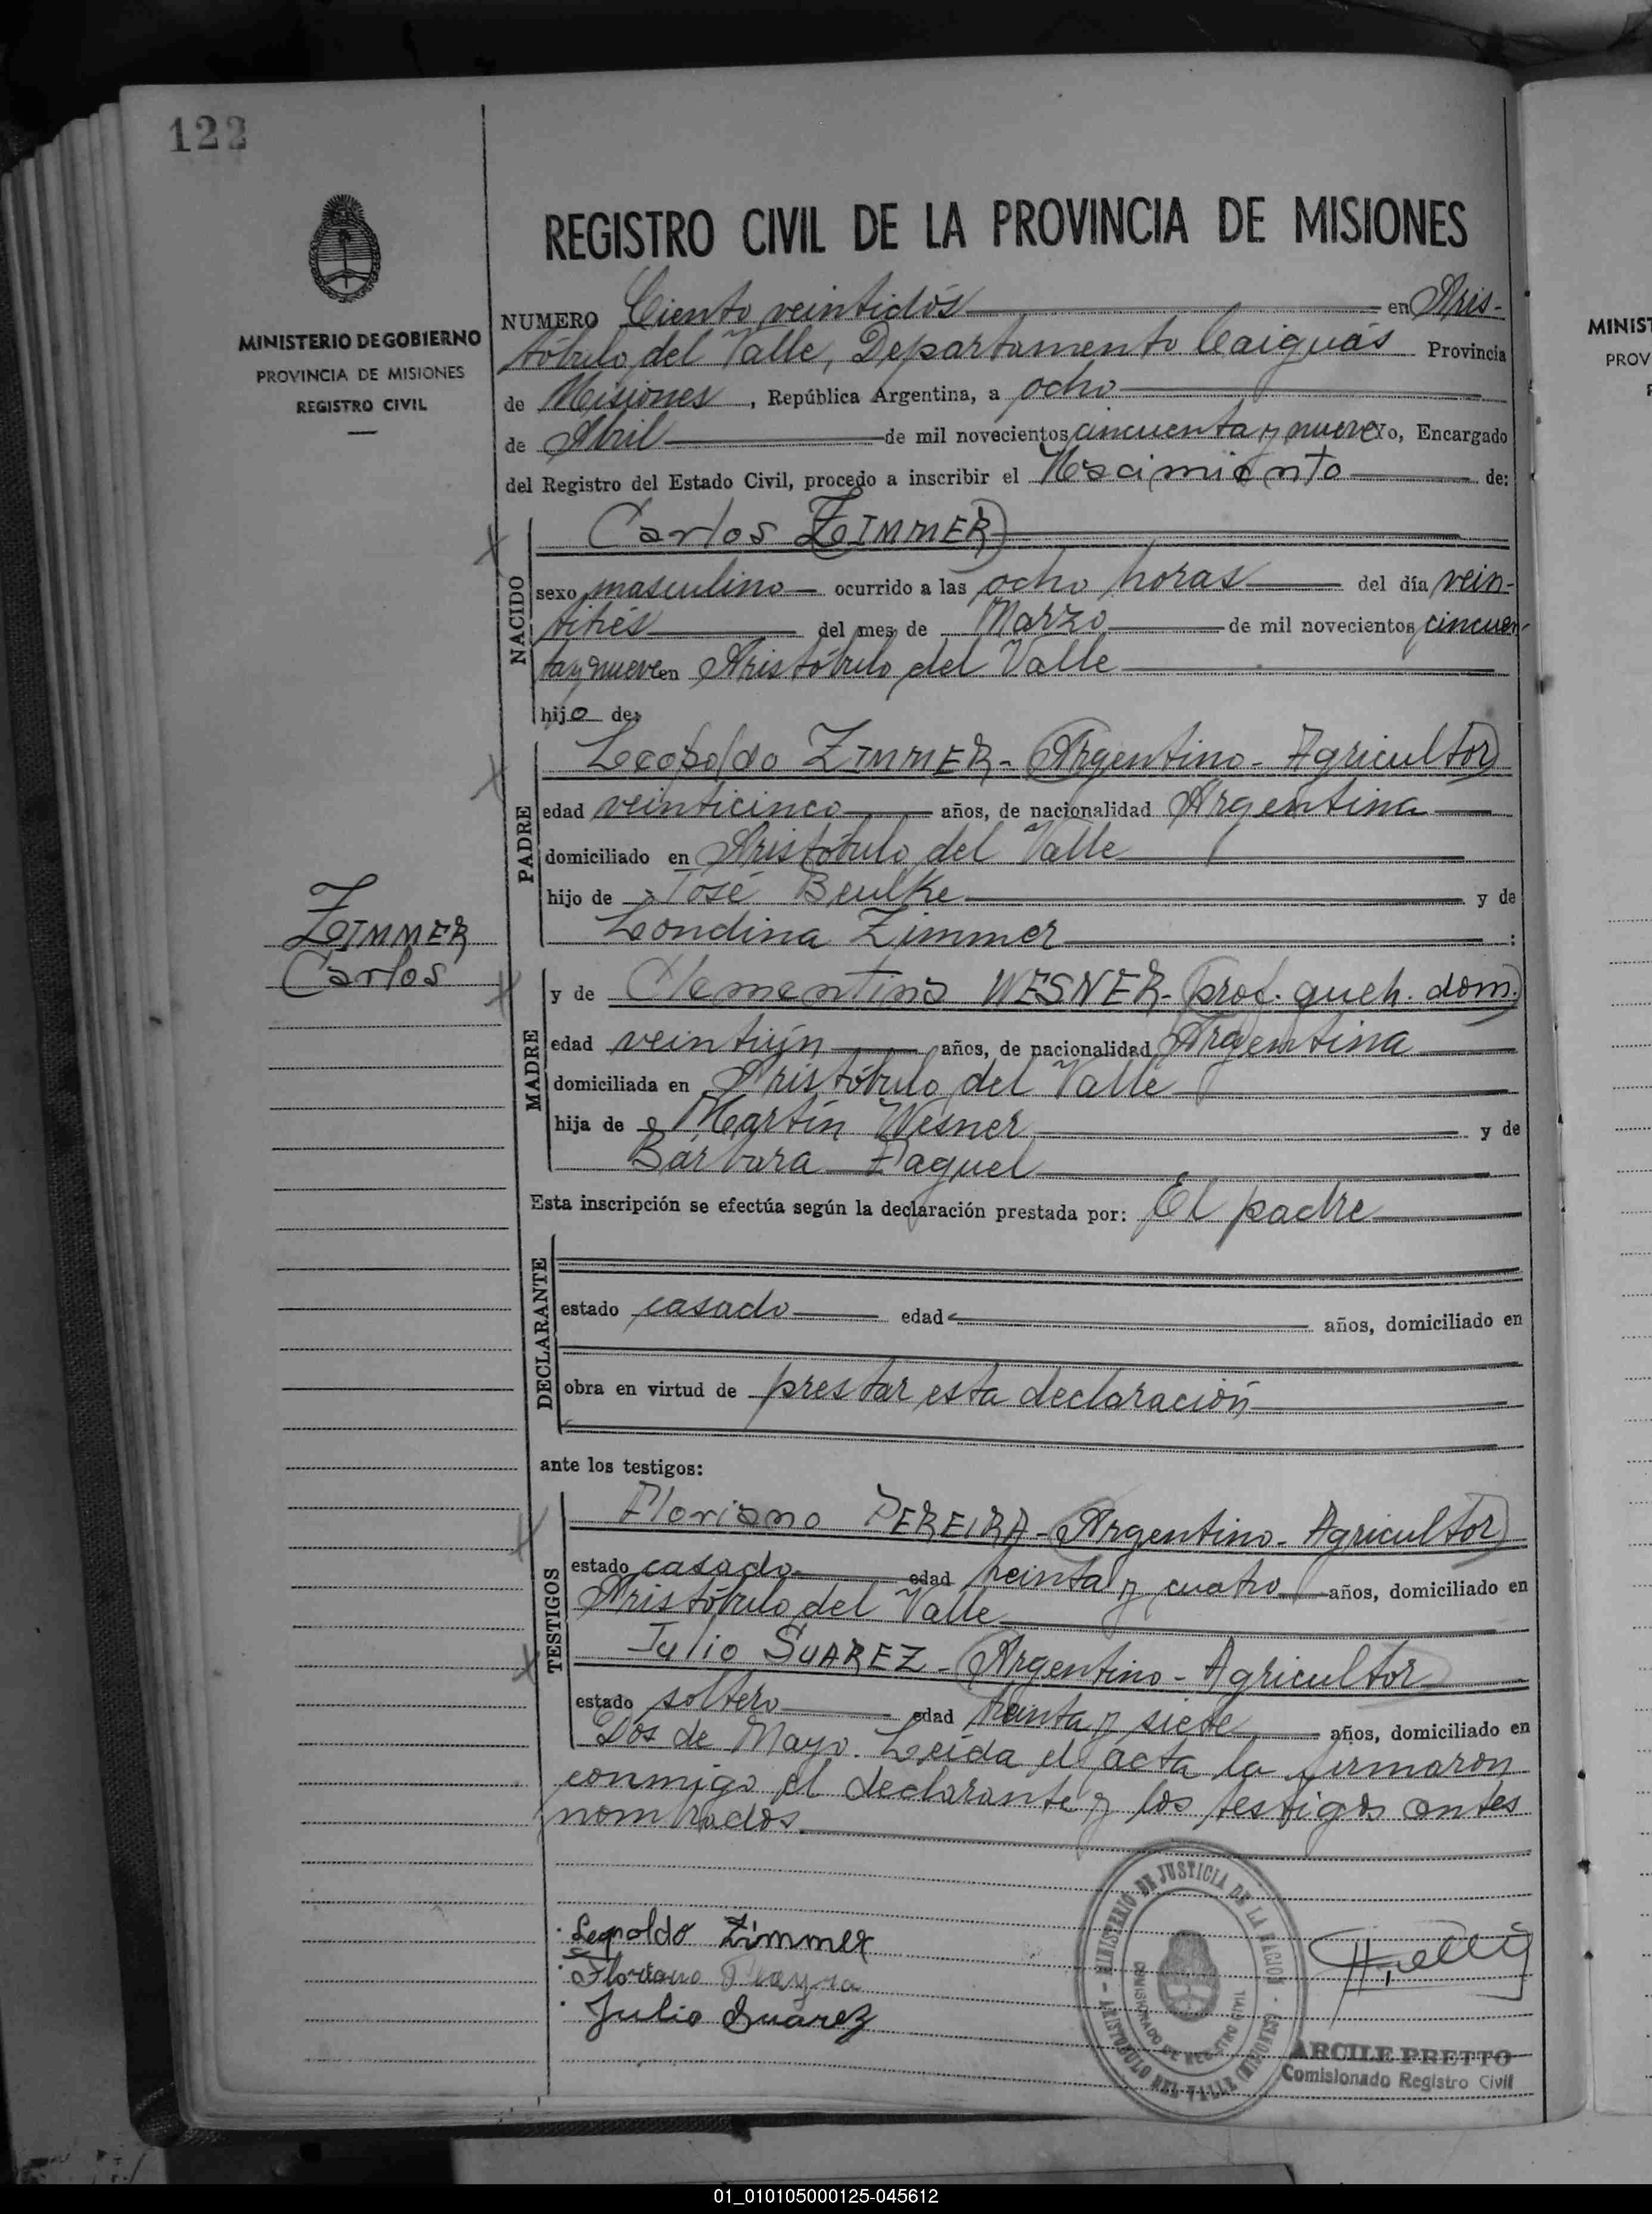 122
REGISTRO CIVIL DE LA PROVINCIA DE MISIONES
MINISTERIO DE GOBIERNO
PROVINCIA DE MISIONES
REGISTRO CIVIL
NUMERO Ciento veintidós en Aris-
tóbulo del Valle, Departamento Caiguás Provincia
de Misiones, República Argentina, a ocho
de Abril de mil novecientos cincuenta y nueve Yo, Encargado
del Registro del Estado Civil, procedo a inscribir el Nacimiento de:
NACIDO
Carlos ZIMMER
sexo masculino ocurrido a las ocho horas del día vein-
titrés del mes de Marzo de mil novecientos cincuen-
ta y nueve en Aristóbulo del Valle
hijo de:
PADRE
Leopoldo ZIMMER - Argentino - Agricultor
edad veinticinco años, de nacionalidad Argentina
domiciliado en Aristóbulo del Valle
hijo de José Beulke y de
Londina Zimmer
ZIMMER
Carlos
MADRE
y de Clementina WESNER - prof. queh. dom.
edad veintiún años, de nacionalidad Argentina
domiciliada en Aristóbulo del Valle
hija de Martín Wesner y de
Bárbara Raquel
Esta inscripción se efectúa según la declaración prestada por: El padre
DECLARANTE
estado casado edad años, domiciliado en
obra en virtud de prestar esta declaración
ante los testigos:
TESTIGOS
Floriano PEREIRA - Argentino - Agricultor
estado casado edad treinta y cuatro años, domiciliado en
Aristóbulo del Valle
Julio SUAREZ - Argentino - Agricultor
estado soltero edad treinta y siete años, domiciliado en
Dos de Mayo. Leída el acta la firmaron
conmigo el declarante y los testigos antes
nombrados.
Leopoldo Zimmer
Floriano
Julio Suárez
MINISTERIO DE JUSTICIA DE LA NACION
ARISTOBULO DEL VALLE (MISIONES)
ARCILE PRETTO
Comisionado Registro Civil
MINIST
PROV
01_010105000125-045612